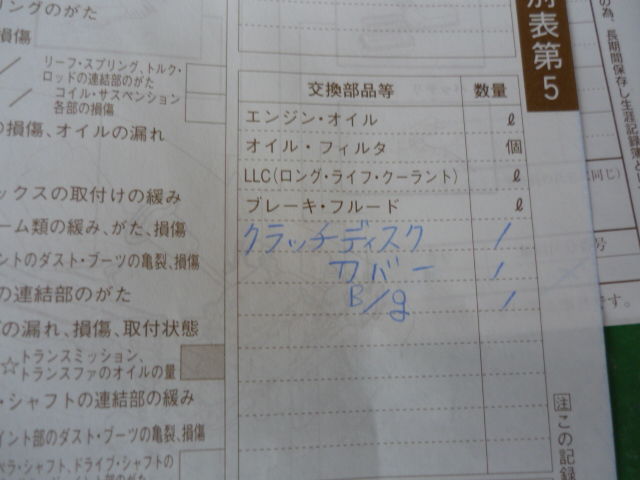 リングのがた
損傷
リーフ・スプリング、トルク・
ロッドの連結部のがた
コイル・サスペンション
各部の損傷
の損傷、オイルの漏れ
ックスの取付けの緩み
ーム類の緩み、がた、損傷
イントのダスト・ブーツの亀裂、損傷
の連結部のがた
の漏れ、損傷、取付状態
☆トランスミッション、
トランスファのオイルの量
・シャフトの連結部の緩み
イント部のダスト・ブーツの亀裂、損傷
ペラ・シャフト、ドライブ・シャフトの
交換部品等 数量
エンジン・オイル ℓ
オイル・フィルタ 個
LLC(ロング・ライフ・クーラント) ℓ
ブレーキ・フルード ℓ
クラッチディスク 1
カバー 1
B/g 1
別表第5
注この記録
の為、長期間保存し生涯記録簿とし
同じ)
号
です。